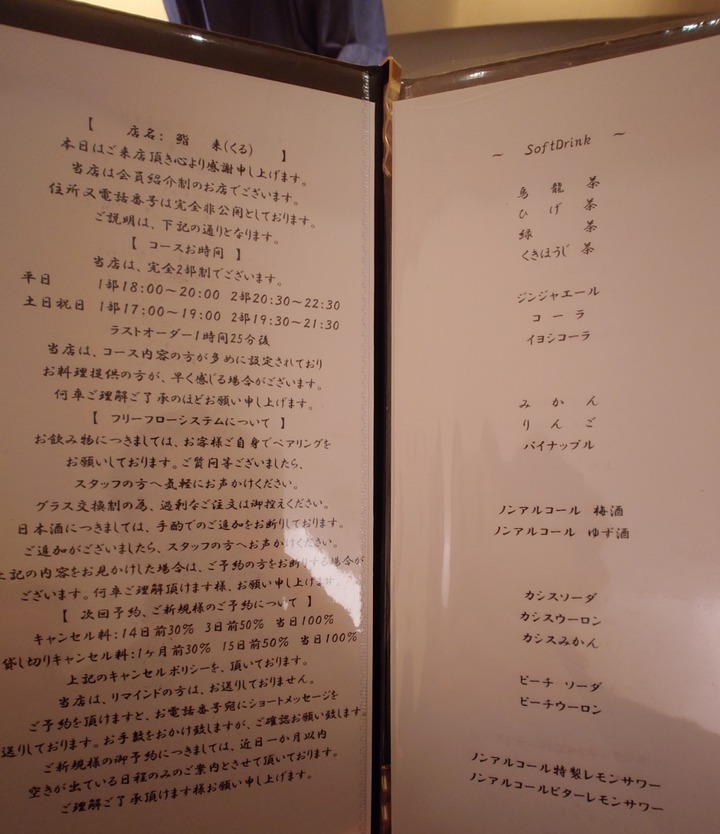 【 店名: 鮨 来(くる) 】
本日はご来店頂き心より感謝申し上げます。
当店は会員紹介制のお店でございます。
住所又電話番号は完全非公開としております。
ご説明は、下記の通りとなります。
【 コースお時間 】
当店は、完全2部制でございます。
平日 1部18:00～20:00 2部20:30～22:30
土日祝日 1部17:00～19:00 2部19:30～21:30
ラストオーダー1時間25分後
当店は、コース内容の方が多めに設定されており
お料理提供の方が、早く感じる場合がございます。
何卒ご理解ご了承のほどお願い申し上げます。
【 フリーフローシステムについて 】
お飲み物につきましては、お客様ご自身でペアリングを
お願いしております。ご質問等ございましたら、
スタッフの方へ気軽にお声かけください。
グラス交換制の為、過剰なご注文は御控えください。
日本酒につきましては、手酌でのご追加をお断りしております。
ご追加がございましたら、スタッフの方へお声かけください。
上記の内容をお見かけした場合は、ご予約の方をお断りする場合が
ございます。何卒ご理解頂けます様、お願い申し上げます。
【 次回予約、ご新規様のご予約について 】
キャンセル料:14日前30% 3日前50% 当日100%
貸し切りキャンセル料:1ヶ月前30% 15日前50% 当日100%
上記のキャンセルポリシーを、頂いております。
当店は、リマインドの方は、お送りしておりません。
ご予約を頂けますと、お電話番号宛にショートメッセージを
送りしております。お手数をおかけ致しますが、ご確認お願い致します。
ご新規様の御予約につきましては、近日一か月以内
空きが出ている日程のみのご案内とさせて頂いております。
ご理解ご了承頂けます様お願い申し上げます。
～ SoftDrink ～
烏龍茶
ひげ茶
緑茶
くきほうじ茶
ジンジャエール
コーラ
イヨシコーラ
みかん
りんご
パイナップル
ノンアルコール 梅酒
ノンアルコール ゆず酒
カシスソーダ
カシスウーロン
カシスみかん
ピーチ ソーダ
ピーチウーロン
ノンアルコール特製レモンサワー
ノンアルコールビターレモンサワー